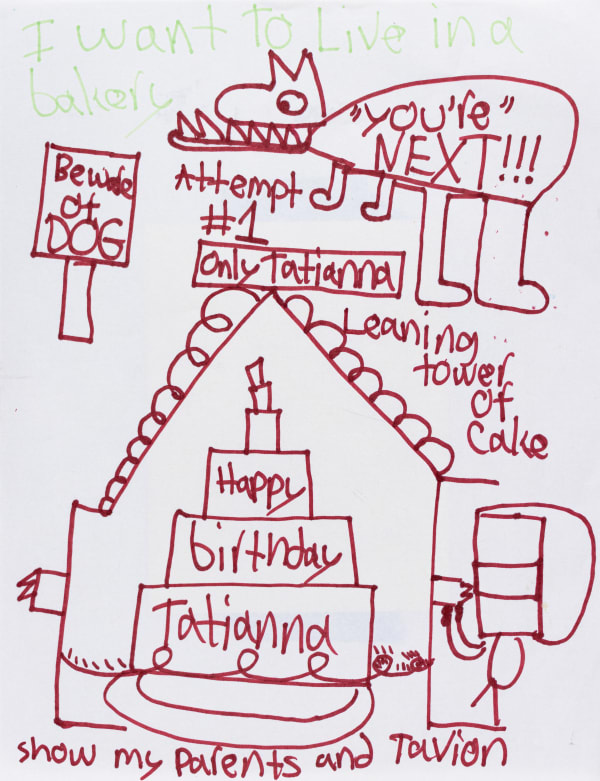 I want To Live in a
bakery
"you're"
NEXT!!!
Beware
of
DOG
Attempt
#1
Only Tatianna
Leaning
tower
of
Cake
Happy
birthday
Tatianna
show my parents and Tavion